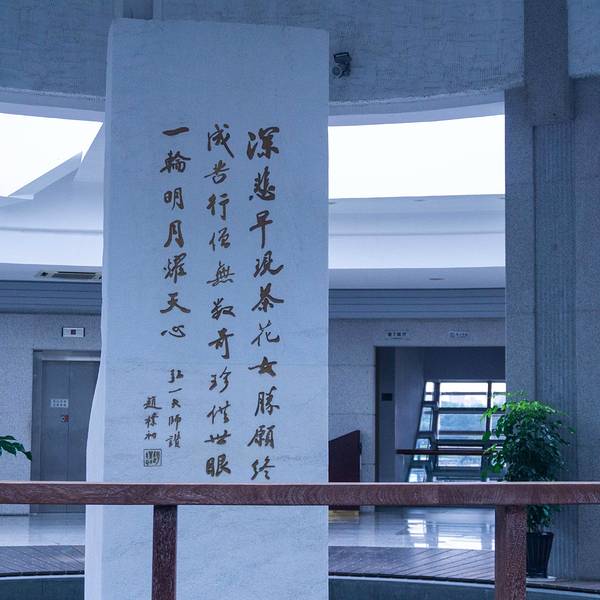 深悲早現茶花女勝願終
成苦行僧無数奇珍供世眼
一輪明月燿天心
弘一大師讚
趙樸初